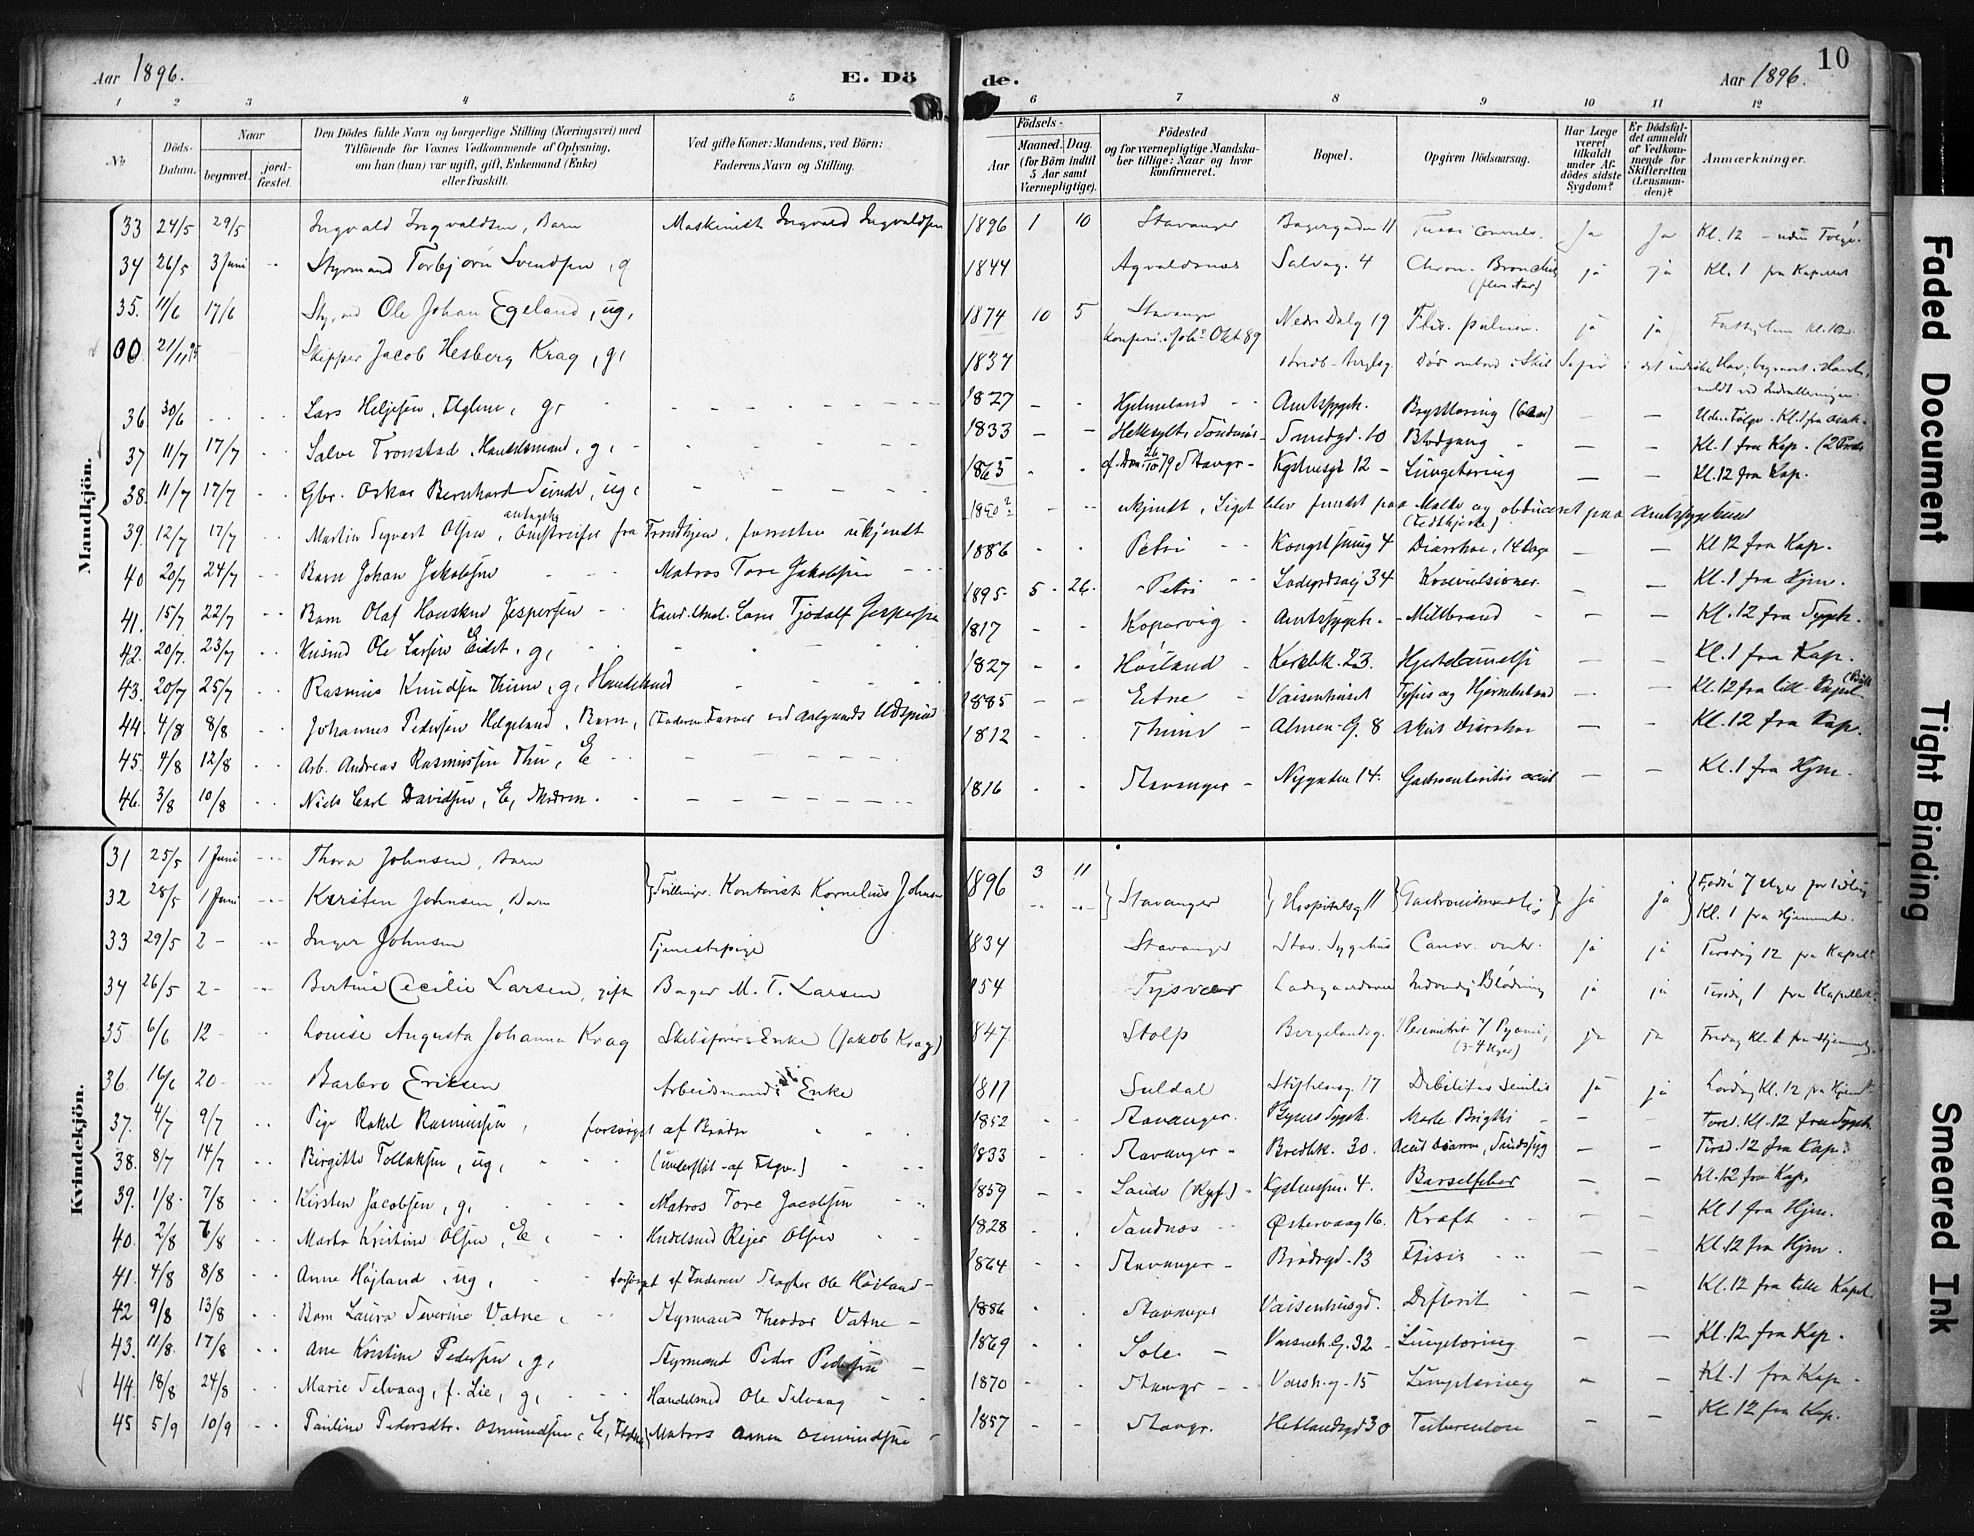 10
Aar 1896.
E. Dö
de.
Aar 1896.
1 2 3 4 5 6 7 8 9 10 11 12
No
Döds-Datum.
Naar
begravet.
jord-fæstet.
Den Dödes fulde Navn og borgerlige Stilling (Næringsvei) med
Tilföiende for Voxnes Vedkommende af Oplysning,
om han (hun) var ugift, gift, Enkemand (Enke)
eller fraskilt.
Ved gifte Koner: Mandens, ved Börn:
Faderens Navn og Stilling.
Födsels-
Aar
Maaned. Dag.
(for Börn indtil
5 Aar samt
Værnepligtige).
Födested
og for værnepligtige Mandska-
ber tillige: Naar og hvor
konfirmeret.
Bopæl.
Opgiven Dödsaarsag.
Har Læge
været
tilkaldt
under Af-
dödes sidste
Sygdom?
Er Dödsfal-
det anmeldt
af Vedkom-
mende for
Skifteretten
(Lensman-
den)?
Anmærkninger.
Mandkjön.
33 24/5 29/5 Ingvald Ingvaldsen, Barn Maskinist Ingvald Ingvaldsen 1896 1 10 Stavanger Bagergaden 11 Ja Ja Kl. 12 - uden Følge.
34 26/5 3 Juni Styrmand Torbjørn Svendsen, g 1844 Agvaldsnes Salvag. 4 Chron. Bronchit (flere Aar) ja ja Kl. 1 fra Kapellet
35. 11/6 17/6 Ole Johan Egeland, ug, 1874 10 5 Stavanger Okt 89 Nedre Dalg 19 Ftis. pulmon. ja ja
00 21/11 95 Skipper Jacob Hesberg Krag, g, 1837 Død ombord i Skib
36 30/6 Lars Heljesen, g, 1827 - - Hjelmeland Amtssygeh. Brysttæring - - Uden Følge. Kl. 1 fra
37 11/7 17/7 Salve Tronstad, Handelsmand, g, 1833 - - Hellesylt, Smedgd. 10 Blodgang - - Kl. 1 fra Kap.
38. 11/7 17/7 Gbr. Oskar Bernhard ug, 1865 Stavgr. 12 Lungetæring - - Kl. 12 fra Kap.
39. 12/7 17/7 Martin Sigvart Olsen, antagelig Omstreifer fra Trondhjem, forresten ukjendt 1850? ukjendt, Liget blev fundet paa og obduceret paa Amtssygehuset
40 20/7 24/7 Barn Johan Jakobsen Matros Tore Jakobsen 1886 Petri Kongst 4 Diarrhoe, 14 Dage - - Kl 12 fra Kap.
41. 15/7 22/7 Barn Olaf Jespersen Kand. Lars Tjodolf Jespersen 1895 5 26 Petri Ladegdsvej 34 Konvulsioner - Kl. 1 fra Hjm.
42. 20/7 23/7 Ole Larsen g, 1817 - - Kopervig Amtssygeh. Miltbrand - - Kl. 12 fra Sygeh.
43. 20/7 25/7 Rasmus Knudsen Thime, g, 1827 Høiland Kirkbk. 23. Hjertelammelse - - Kl. 1 fra Kap.
44. 4/8 8/8 Johannes Pedersen Helgeland, Barn, 1885 - - Etne Vaisenhuset Tyfus og Hjernebetænd - - Kl. 12 fra lill. Kapel
45. 4/8 12/8 Arb. Andreas Rasmussen Thu, E 1812 Thime Almen-G. 8 Akut Diarrhoe - - Kl. 12 fra Kap.
46. 3/8 10/8 Niels Carl Davidsen, E, 1816 Stavanger Nygaden 14. - - Kl. 1 fra Hjm.
Kvindekjön.
31 25/5 1 Juni Thora Johnsen, Barn Tvillinger. Kontorist Kornelius Johnsen 1896 3 11 Stavanger Hospitalsg 11 ja ja Født 7 Uger for tidlig
32 28/5 1 Juni Kirsten Johnsen, Barn Kl. 1 fra Hjemmet.
33 29/5 2 - Inger Johnsen Tjenestepige 1834 Stavanger Stav. Sygehus Cancr. ventr. ja ja Tirsdag 12 fra Kapel.
34 26/5 2 - Bertine Cecilie Larsen, gift Bager M. T. Larsen 854 Tysvær Ladegaardsvei Indvendig Blødning ja ja Tirsdag 1 fra Kapellet.
35 6/6 12 - Louise Augusta Johanna Krag Skibsførers Enke (Jakob Krag) 847 Stolp Bergelandsg. (3-4 Uger) ja ja Fredag Kl. 1 fra Hjemmet.
36 16/6 20 - Barbro Eriksen Arbeidsmands Enke 1811 Suldal 17 Debilitas senilis ja ja Lørdag Kl. 12 fra Hjemt
37. 4/7 9/7 Pige Rakel Rasmussen, forsørget af Brødre 1852 Stavanger. Byens Sygeh. Morb. Brightii - - Torsd. Kl. 12 fra Sygeh.
38. 8/7 14/7 Birgitte Tollaksen, ug, (underst. af Fsgv.) 1833 Stavanger Bredbk. 30. Acut Diarrhoe, Sindssyg - - Tirsd. 12 fra Kap.
39. 1/8 7/8 Kirsten Jacobsen, g, Matros Tore Jacobsen 1859 Sande (Ryf.) 4. Barselfeber - - Kl. 12 fra Kap.
40. 2/8 6/8 Marta Kristine Olsen, E, Hndelsmd Rejer Olsen 1828 Sandnes Østervaag 16. Kræft - - Kl 1 fra Hjm.
41. 4/8 8/8 Anne Høiland, ug, forsørget af Faderen Ole Høiland 1864 Stavanger Brødregd. 13 Ftisis - - Kl. 12 fra Hjm.
42 9/8 13/8 Barn Laura Severine Vatne, Styrmand Theodor Vatne - 1886 Stavanger Vaisenhusgd. Difterit - - Kl. 12 fra lille Kapel.
43. 11/8 17/8 Ane Kristine Pedersen, g, Styrmand Peder Pedersen - 1869 Sole. - 32 Lungetæring - - Kl. 12 fra Kap.
44. 18/8 24/8 Marie Selvaag, f. Lie, g, Handelsmd Ole Selvaag 1870 Stavgr 15 Lungetæring - - Kl. 1 fra Kap.
45 5/9 10/9 Pauline Pedersdtr. Osmundsen, E, Matros Osmundsen 1857 - - Stavgr. Hetlandsgd 30 Tuberculose - - Kl. 12 fra Kap.
Faded Document
Tight Binding
Smeared Ink